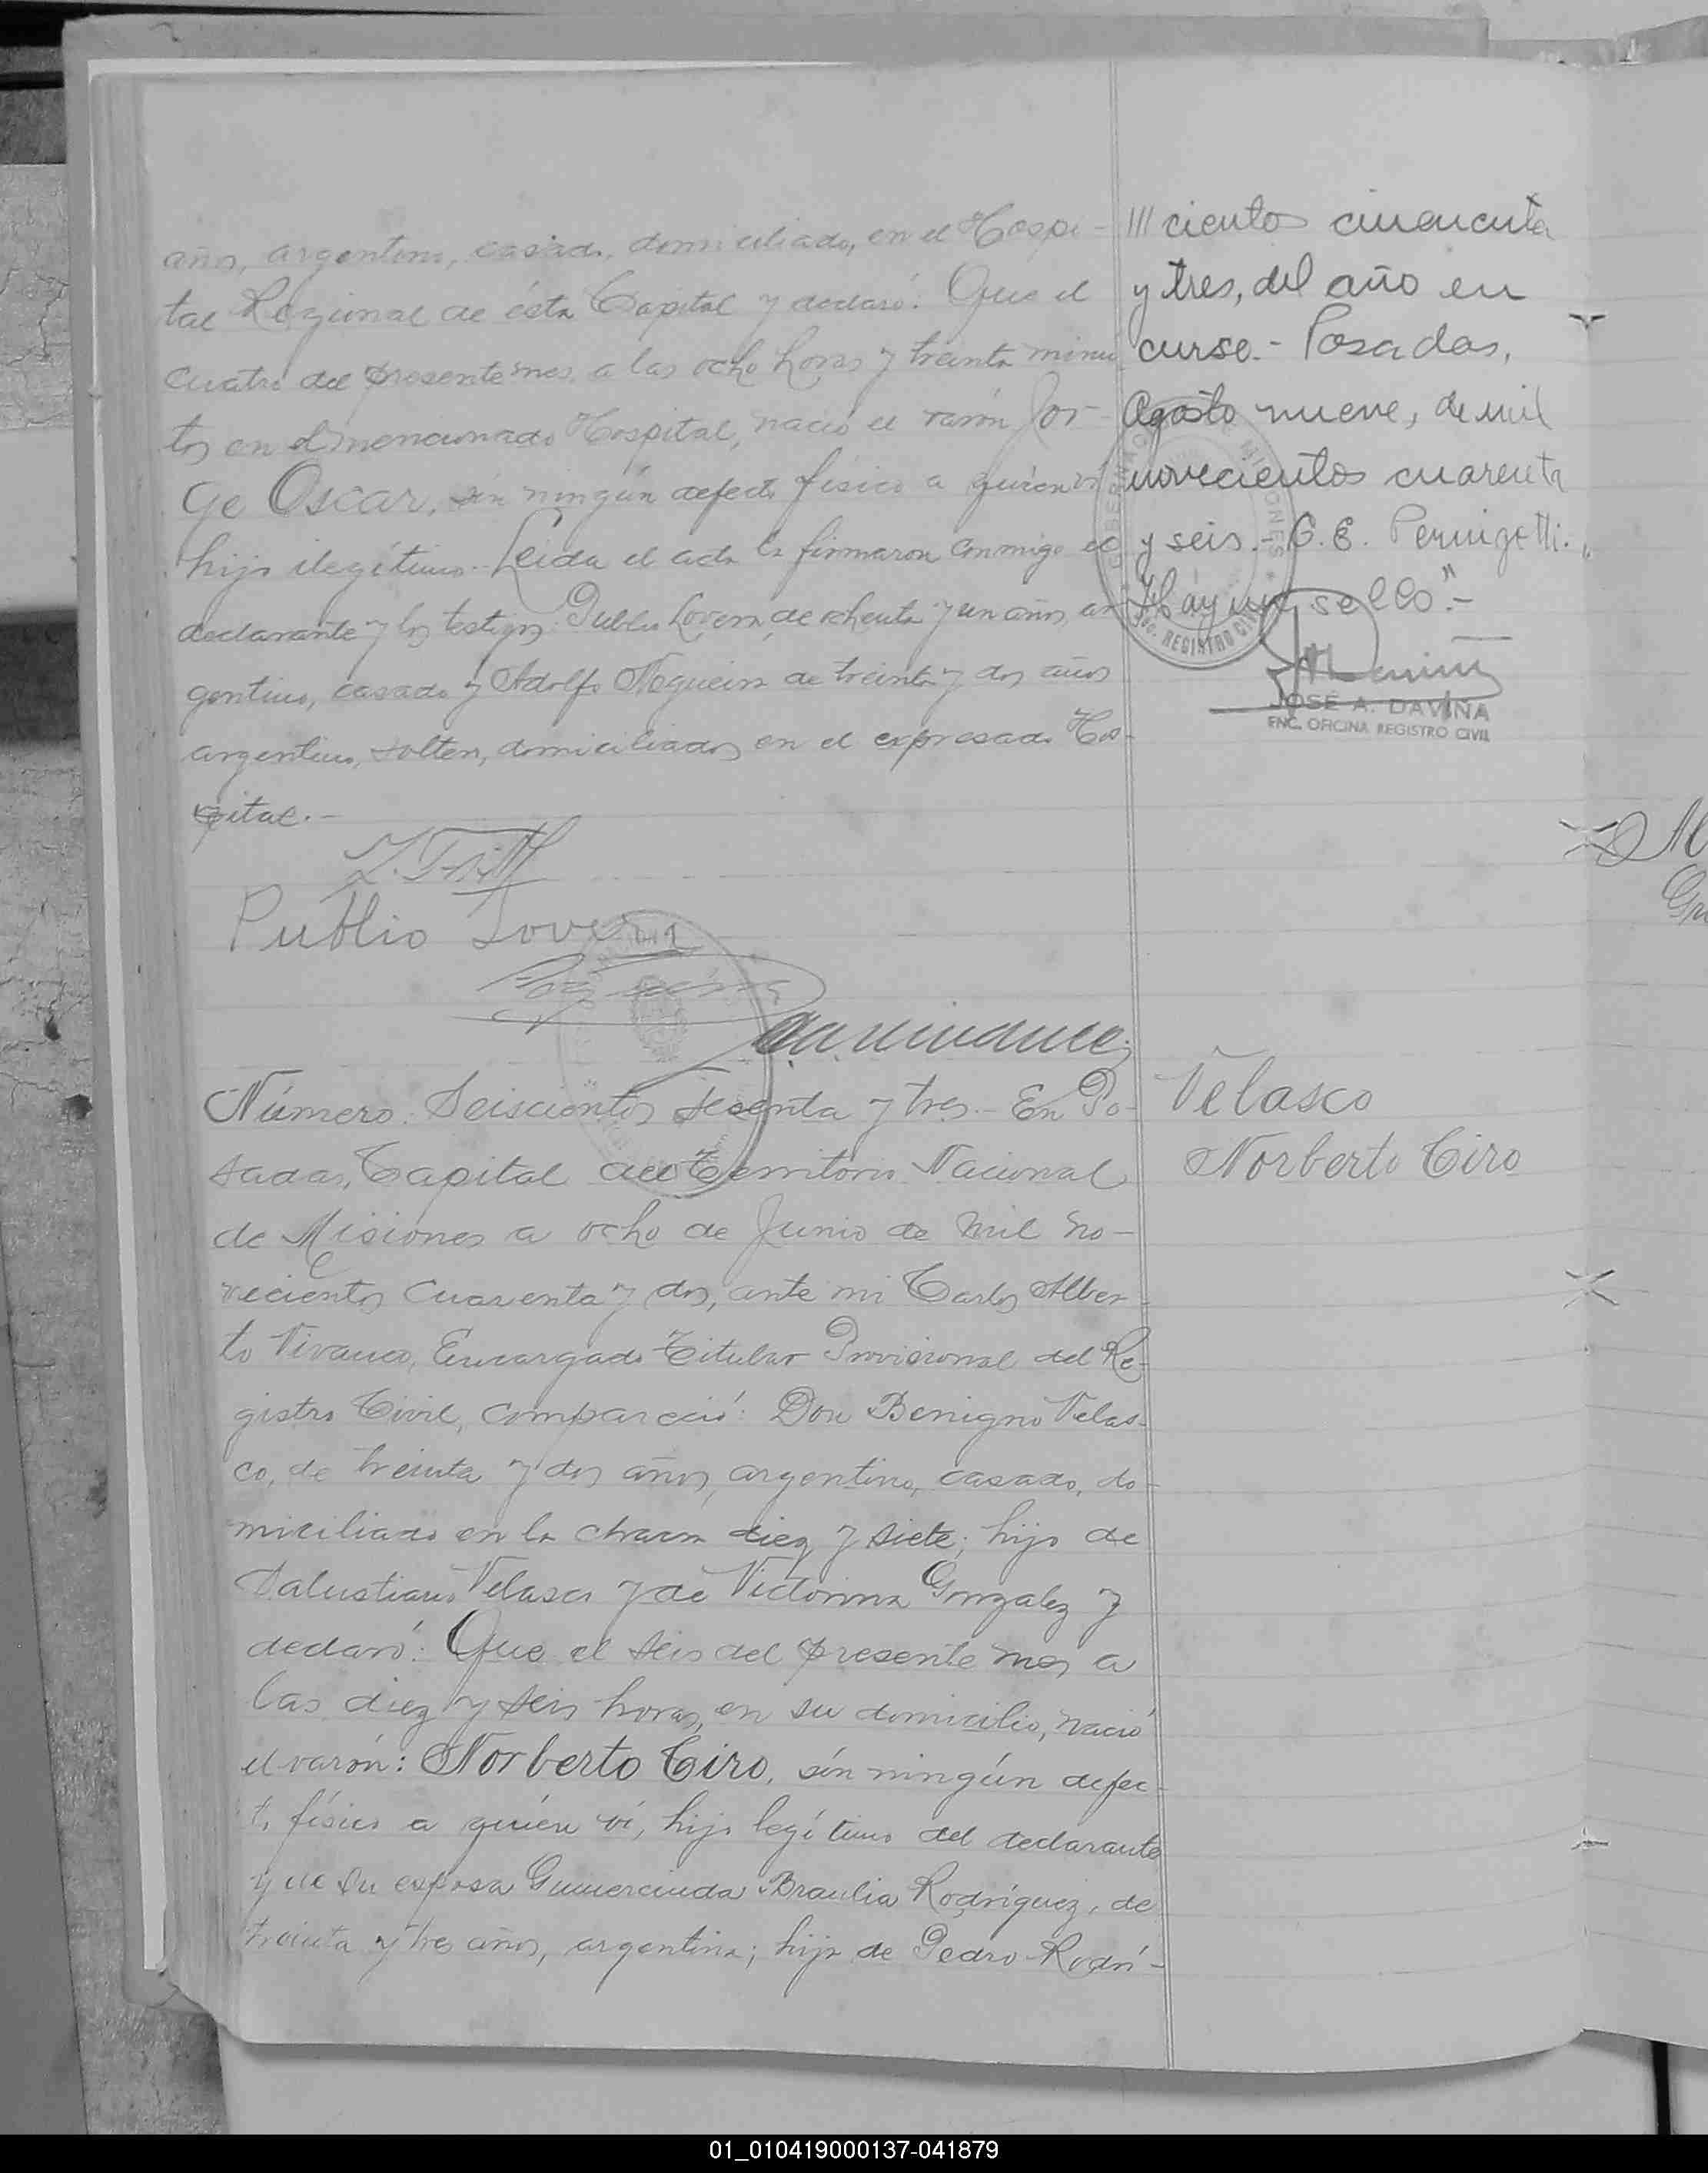 años, argentino, casado, domiciliado, en el Hospi-
tal Regional de ésta Capital y declaró: Que el
cuatro del presente mes, a las ocho horas y treinta minu
tos en el mencionado Hospital, nació el varón Jor-
ge Oscar, sin ningún defecto físico a quién ví
hijo ilegítimo.- Leída el acta la firmaron conmigo el
declarante y los testigos: Publio Lovera, de ochenta y un años, ar
gentino, casado y Adolfo Nogueira de treinta y dos años
argentino, soltero, domiciliados en el expresado Hos-
pital.-
Publio Lovera
Número: Seiscientos sesenta y tres.- En Po-
sadas, Capital del Territorio Nacional
de Misiones a ocho de Junio de mil no-
vecientos cuarenta y dos, ante mi Carlos Alber-
to Vivanco, Encargado Titular Provisional del Re-
gistro Civil, compareció: Don Benigno Velas-
co, de treinta y dos años, argentino, casado, do-
miciliado en la chacra diez y siete; hijo de
Salustiano Velasco y de Victorina Gonzalez y
declaró: Que el seis del presente mes, a
las diez y seis horas, en su domicilio, nació
el varón: Norberto Ciro, sin ningún defec-
to físico a quién ví, hijo legítimo del declarante
y de su esposa Gumercinda Braulia Rodríguez, de
treinta y tres años, argentina; hija de Pedro Rodrí-
III cientos cincuenta
y tres, del año en
curso.- Posadas,
Agosto nueve, de mil
novecientos cuarenta
y seis.- C. E. Pernigotti.
Hay un sello".-
REGISTRO CIVIL
JOSÉ A. DAVIÑA
ENC. OFICINA REGISTRO CIVIL
Velasco
Norberto Ciro
01_010419000137-041879